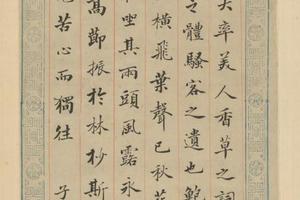 大率美人香草之詞
之體騷客之遺也鮑
橫飛葉聲已秋苔
坐其雨頭風露永
高節振於林杪斯
苦心而獨往 子